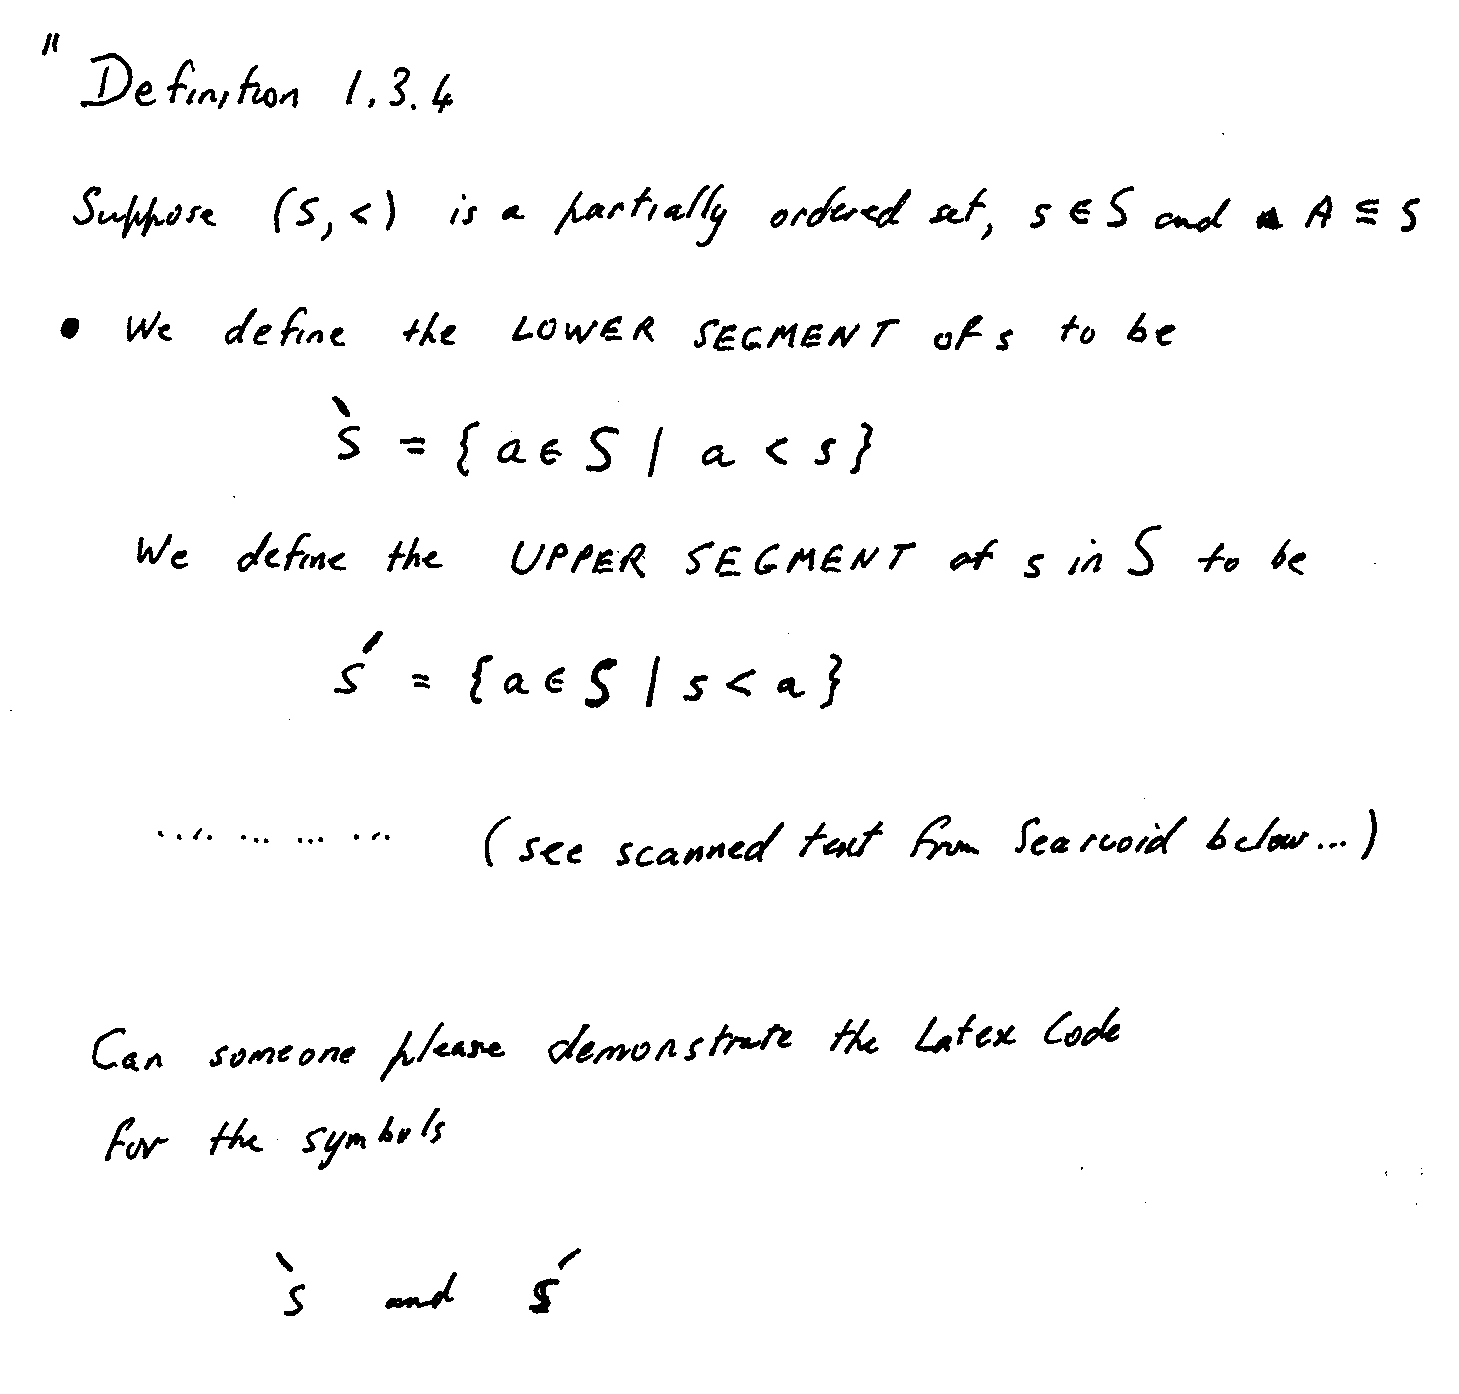 " Definition 1.3.4
Suppose (S, <) is a partially ordered set, s ∈ S and A ⊆ S
• We define the LOWER SEGMENT of s to be
s̀ = { a ∈ S | a < s }
We define the UPPER SEGMENT of s in S to be
ś = { a ∈ S | s < a }
.... ... ... ... (see scanned text from Searcoid below...)
Can someone please demonstrate the Latex Code
for the symbols
s̀ and ś